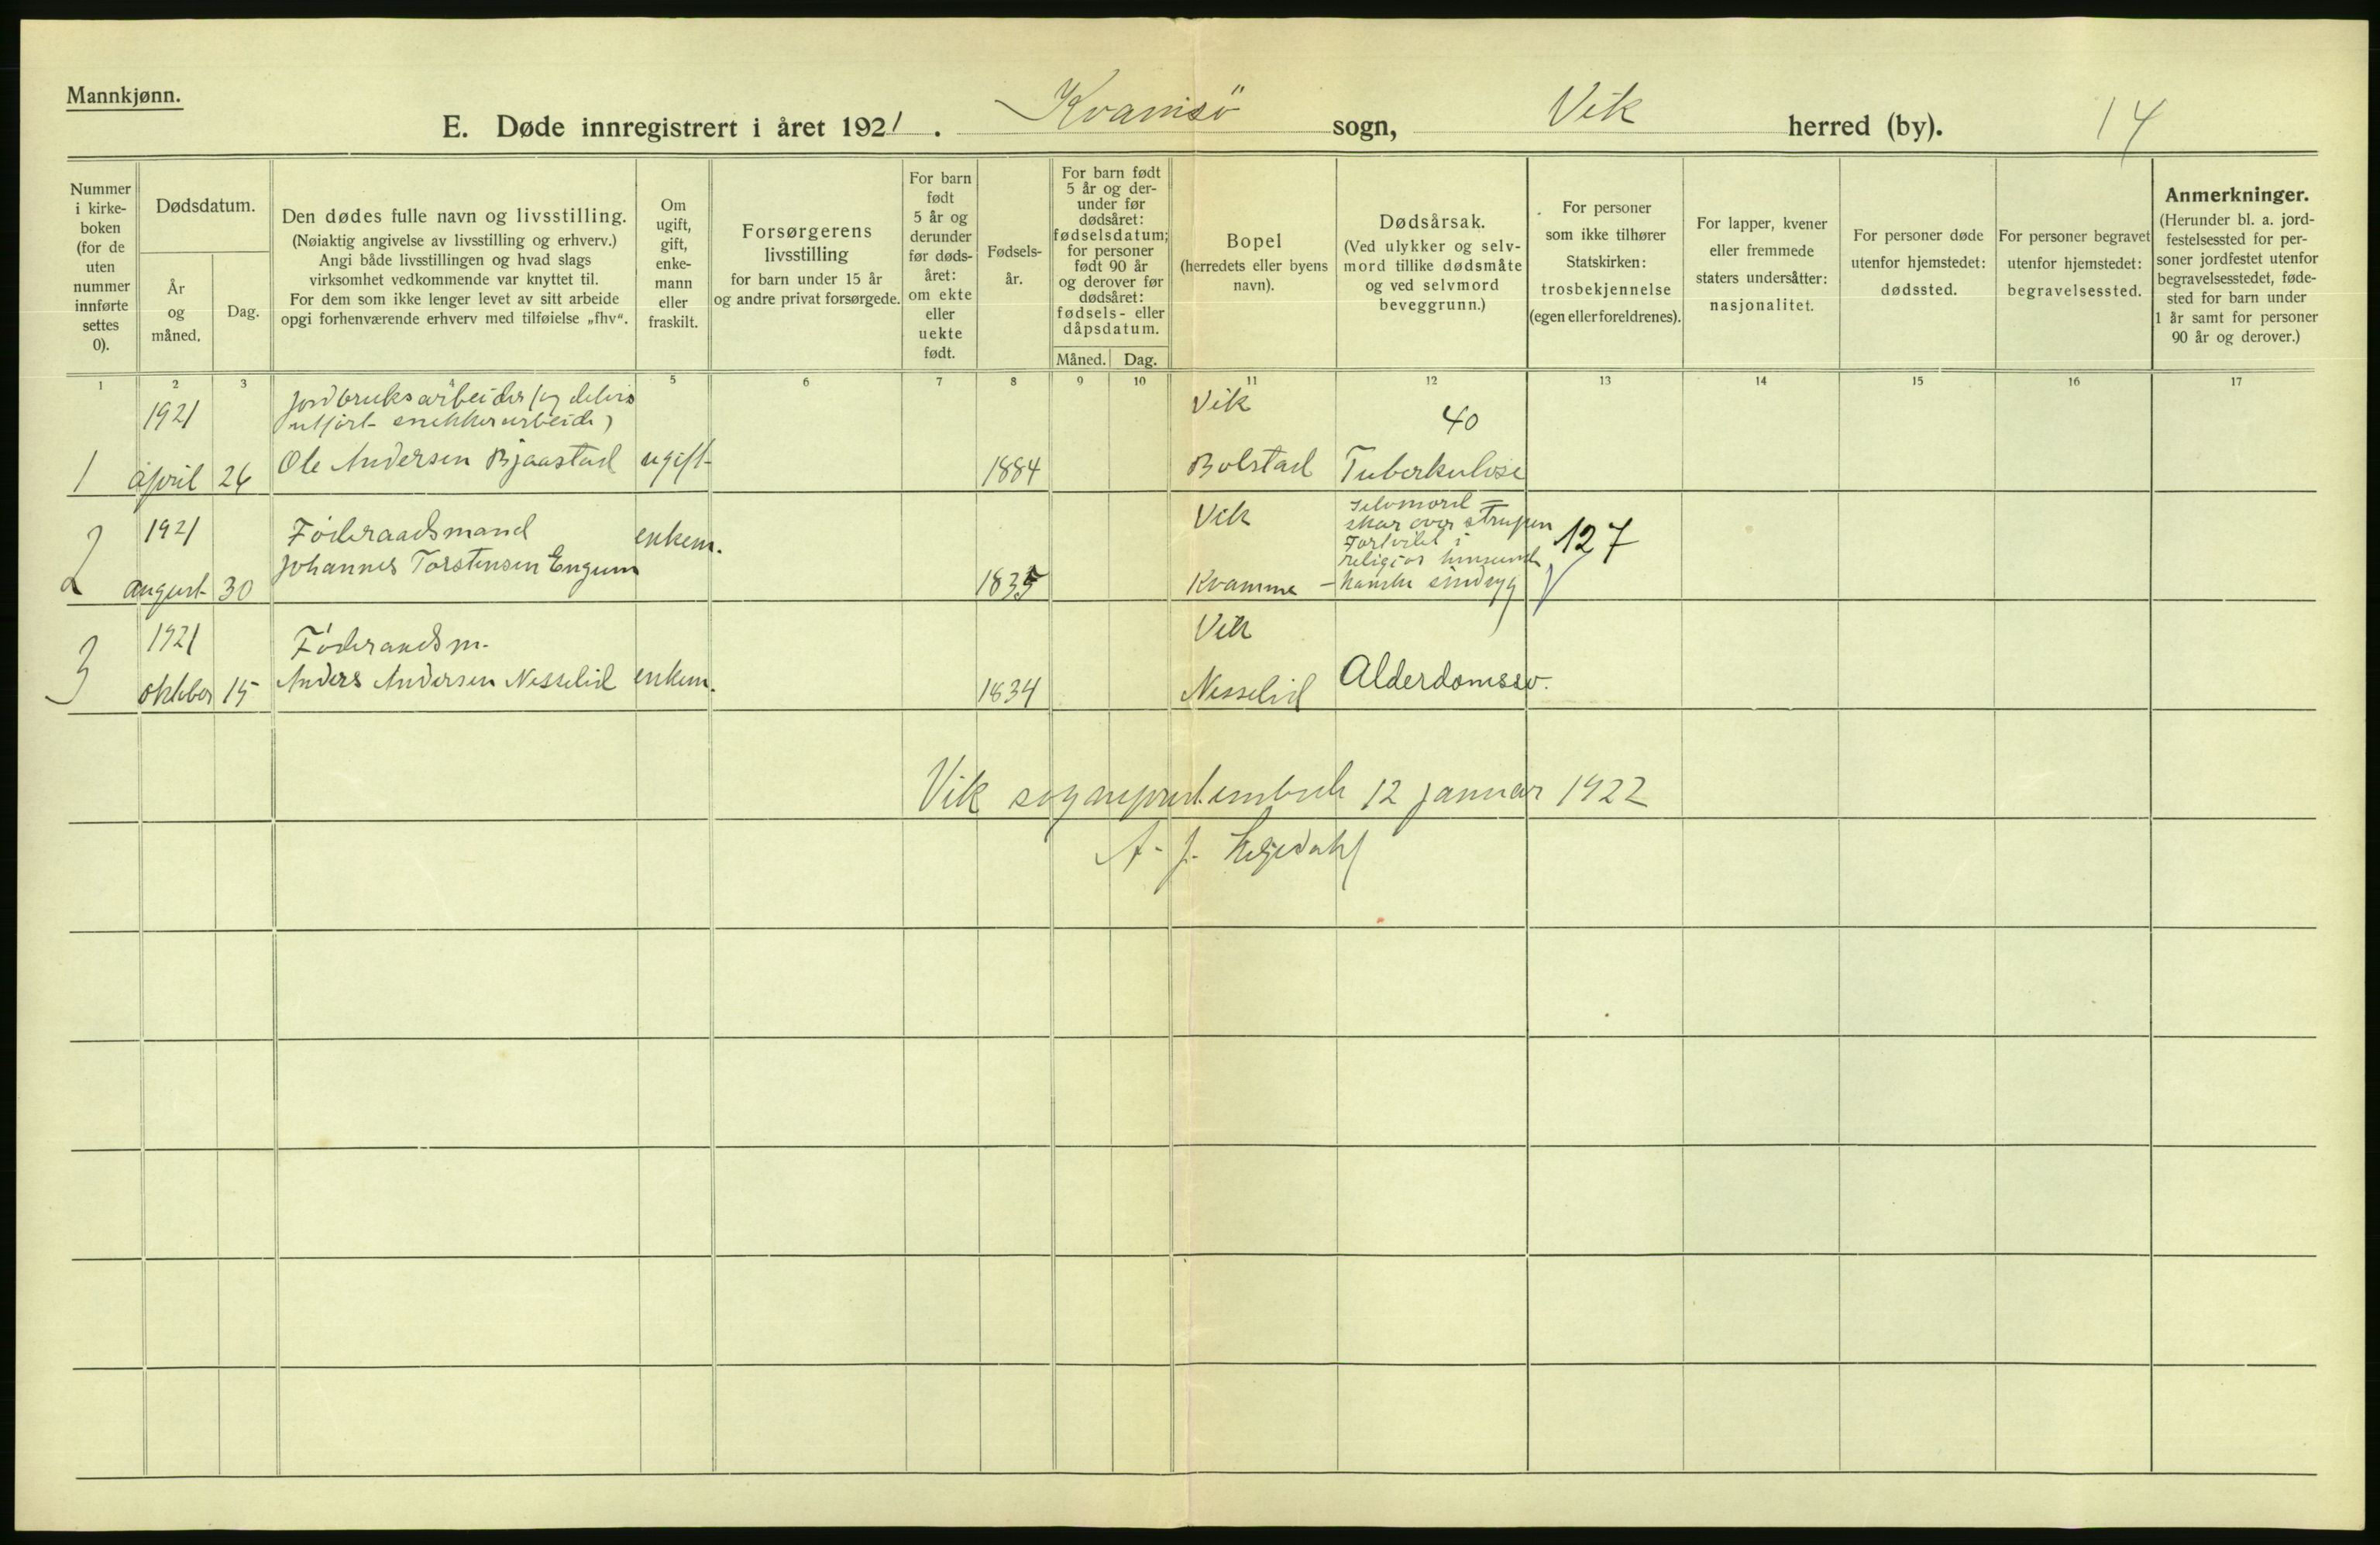 Mannkjønn.
E. Døde innregistrert i året 1921. Kvamsö sogn, Vik herred (by). 14
Nummer
i kirke-
boken
(for de
uten
nummer
innførte
settes
0).
Dødsdatum.
År
og
måned.
Dag.
Den dødes fulle navn og livsstilling.
(Nøiaktig angivelse av livsstilling og erhverv.)
Angi både livsstillingen og hvad slags
virksomhet vedkommende var knyttet til.
For dem som ikke lenger levet av sitt arbeide
opgi forhenværende erhverv med tilføielse „fhv“.
Om
ugift,
gift,
enke-
mann
eller
fraskilt.
Forsørgerens
livsstilling
for barn under 15 år
og andre privat forsørgede.
For barn
født
5 år og
derunder
før døds-
året:
om ekte
eller
uekte
født.
Fødsels-
år.
For barn født
5 år og der-
under før
dødsåret:
fødselsdatum;
for personer
født 90 år
og derover før
dødsåret:
fødsels- eller
dåpsdatum.
Måned. Dag.
Bopel
(herredets eller byens
navn).
Dødsårsak.
(Ved ulykker og selv-
mord tillike dødsmåte
og ved selvmord
beveggrunn.)
For personer
som ikke tilhører
Statskirken:
trosbekjennelse
(egen eller foreldrenes).
For lapper, kvener
eller fremmede
staters undersåtter:
nasjonalitet.
For personer døde
utenfor hjemstedet:
dødssted.
For personer begravet
utenfor hjemstedet:
begravelsessted.
Anmerkninger.
(Herunder bl. a. jord-
festelsessted for per-
soner jordfestet utenfor
begravelsesstedet, føde-
sted for barn under
1 år samt for personer
90 år og derover.)
1 2 3 4 5 6 7 8 9 10 11 12 13 14 15 16 17
1921 Jordbruksarbeider (og delvis Vik 40
utført snekkerarbeide)
1 april 26 Ole Andersen Bjaastad ugift 1884 Bolstad Tuberkulose
1921 Föderaadsmand enkem. Vik Selvmord =
skar over strupen 127
Fortvilet i
2 Johannes Torstensen Engum religiös
august 30 1835 Kvamme - kanske sindsyg
1921 Föderaadsm. Vik
3 oktober 15 Anders Andersen Nesselid enkem. 1834 Nesselid Alderdomssv.
Vik sogneprestembede 12 januar 1922
A. J.